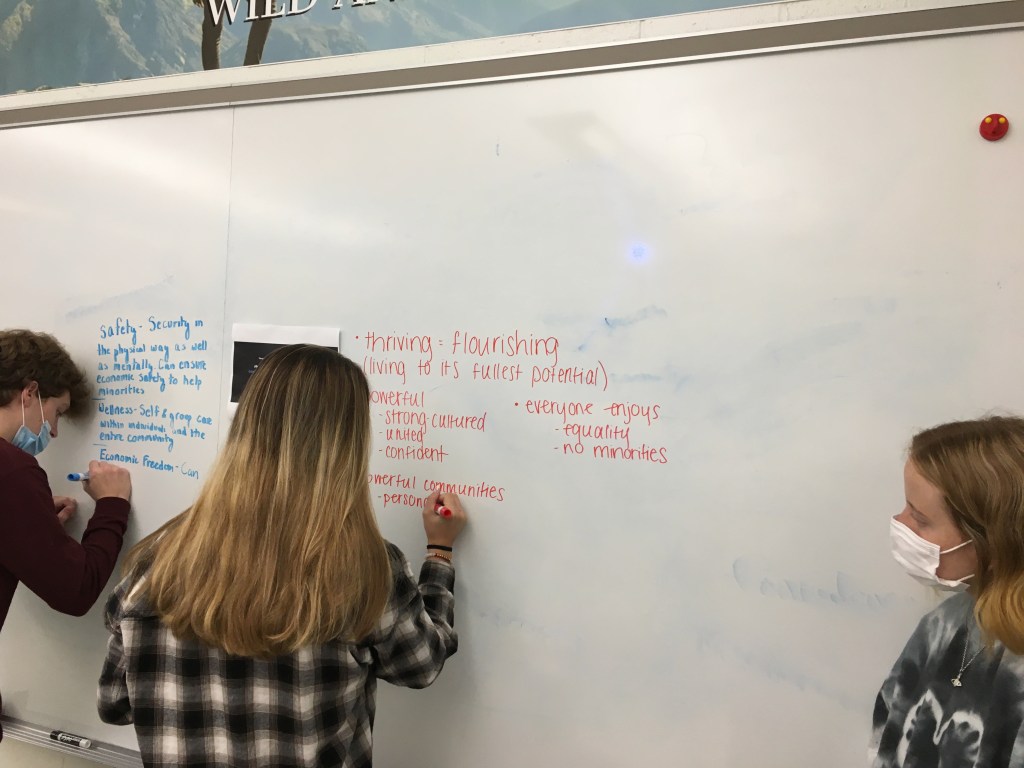 WILD
Safety - Security in
the physical way as well
as mentally. Can ensure
economic safety to help
minorities
Wellness - Self & group care
within individuals and the
entire community
Economic Freedom - Can
• thriving = flourishing
(living to it's fullest potential)
powerful
- strong cultured
- united
- confident
• everyone enjoys
- equality
- no minorities
owerful communities
- person